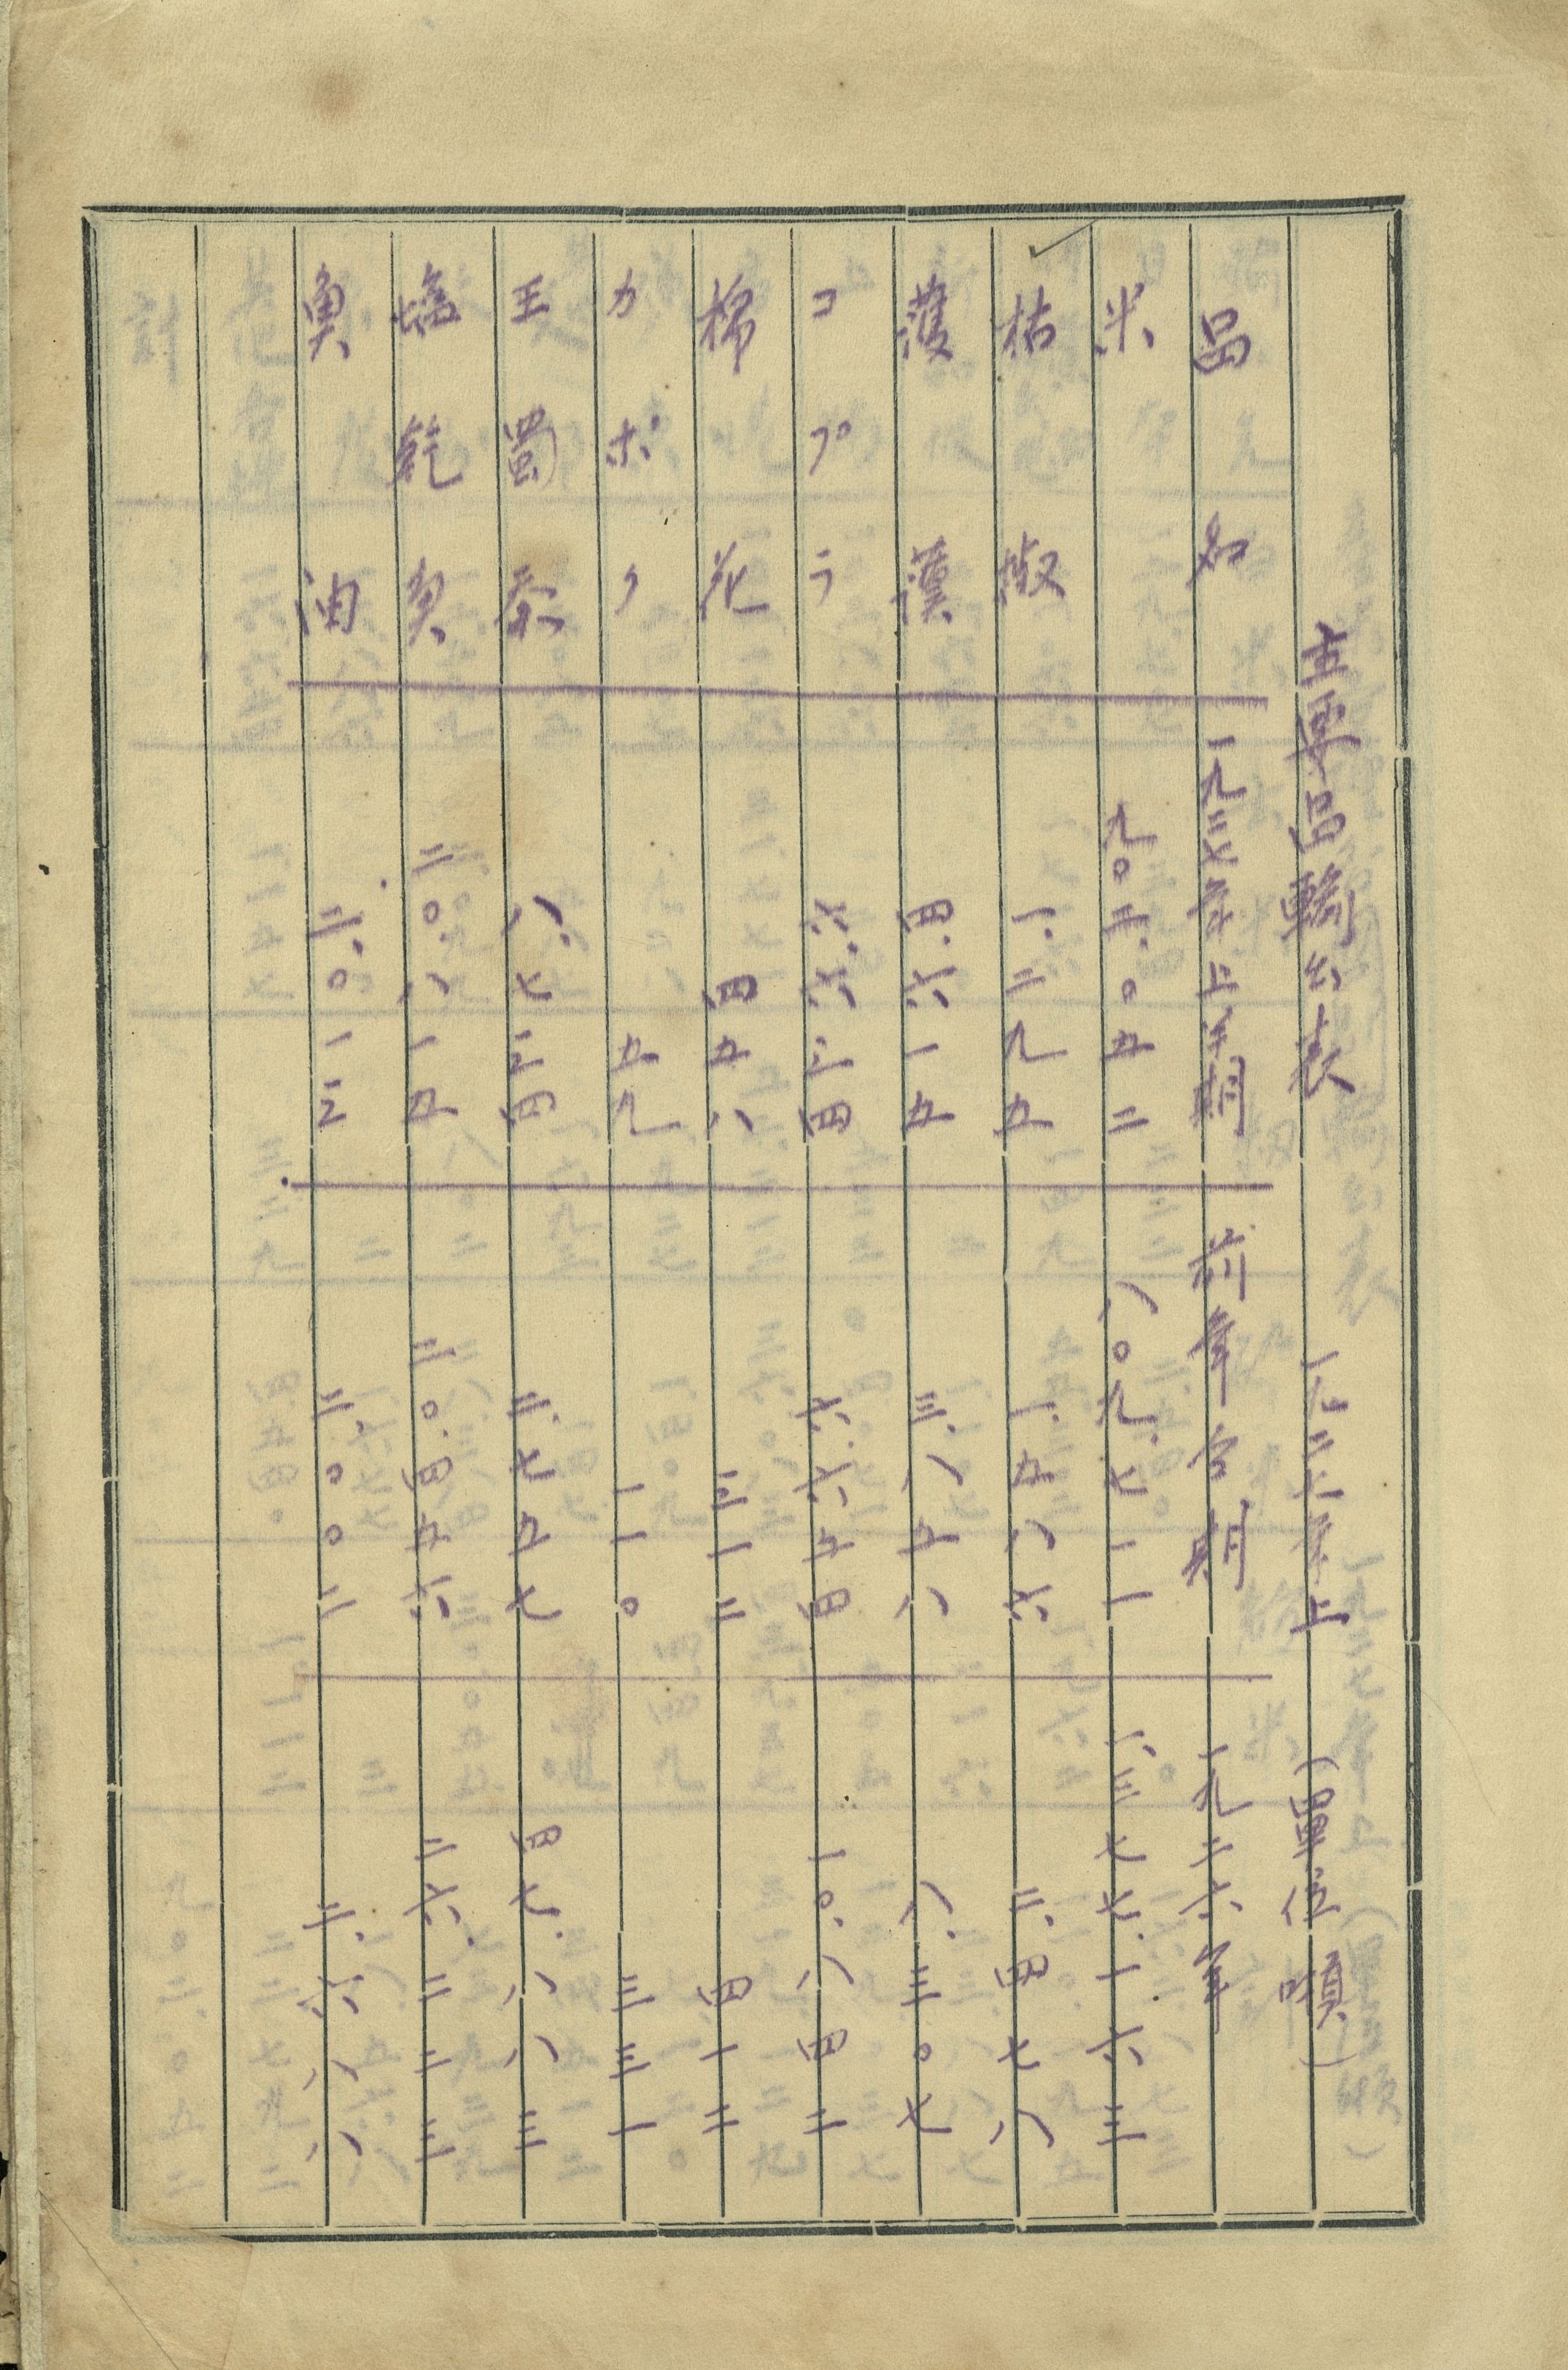 主要品輸出表 一九二六年上 (單位 頓)
品名 一九二七年上半期 前年同期 一九二六年
米 九〇三.〇五二 八〇九.七一一 一、三七七.一六三
枯椒 一.二九五 一.五八六 二.四七八
護謨 四.六一五 三.八五八 八.三〇七
コプラ 六.六二四 六.六五四 一〇.八四二
棉花 四五八 三一二 四一二
カポク 五九 一一〇 三三一
玉蜀黍 八.七二四 三.七五七 四七.八八三
塩乾魚 二〇.八一五 二〇.四五六 二六.二二三
魚油 二.〇一二 二.〇〇二 二.六八八